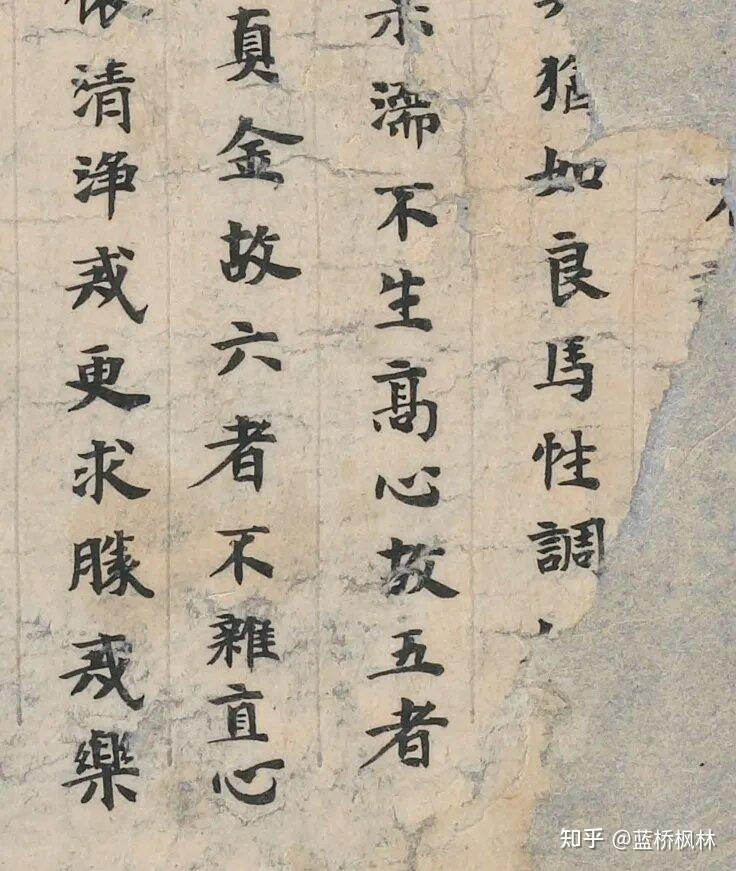 猶如良馬性調
濡不生髙心故五者
真金故六者不雜直心
清浄戒更求勝戒樂
知乎 @蓝桥枫林